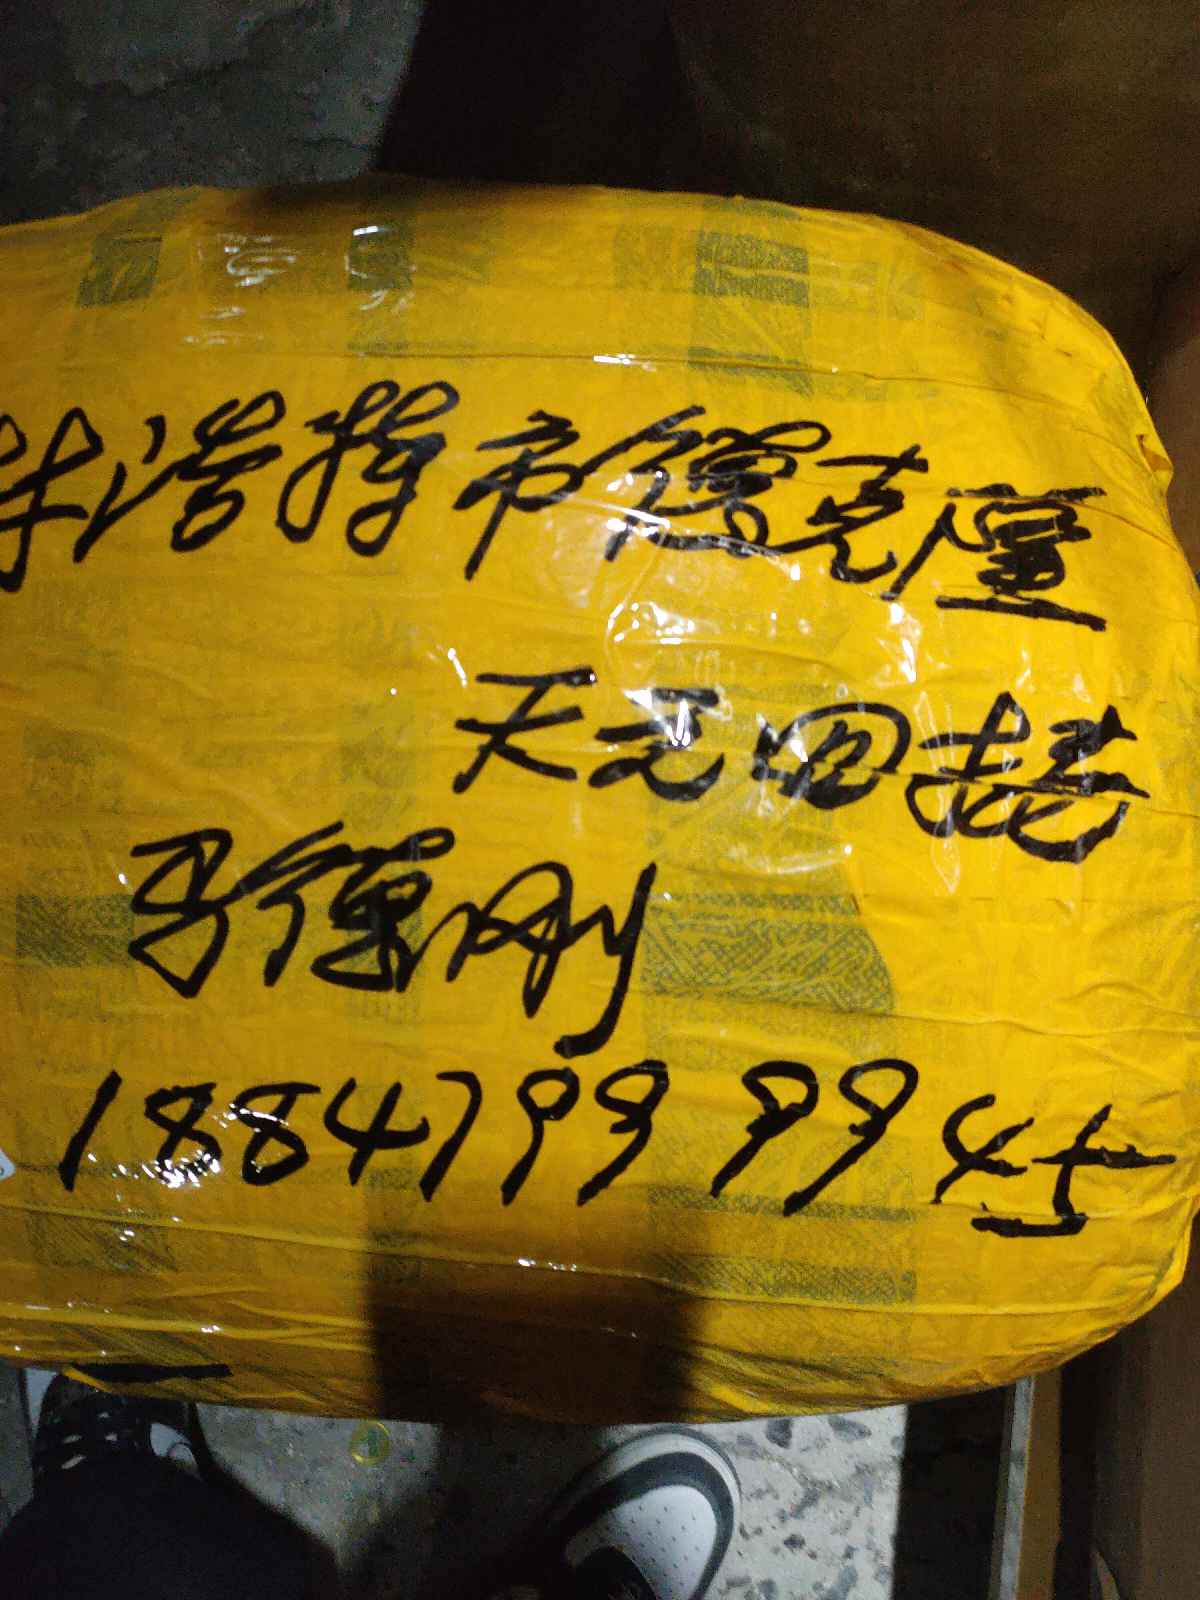 林浩特市德克隆
天元四楼
马德刚
18847999945